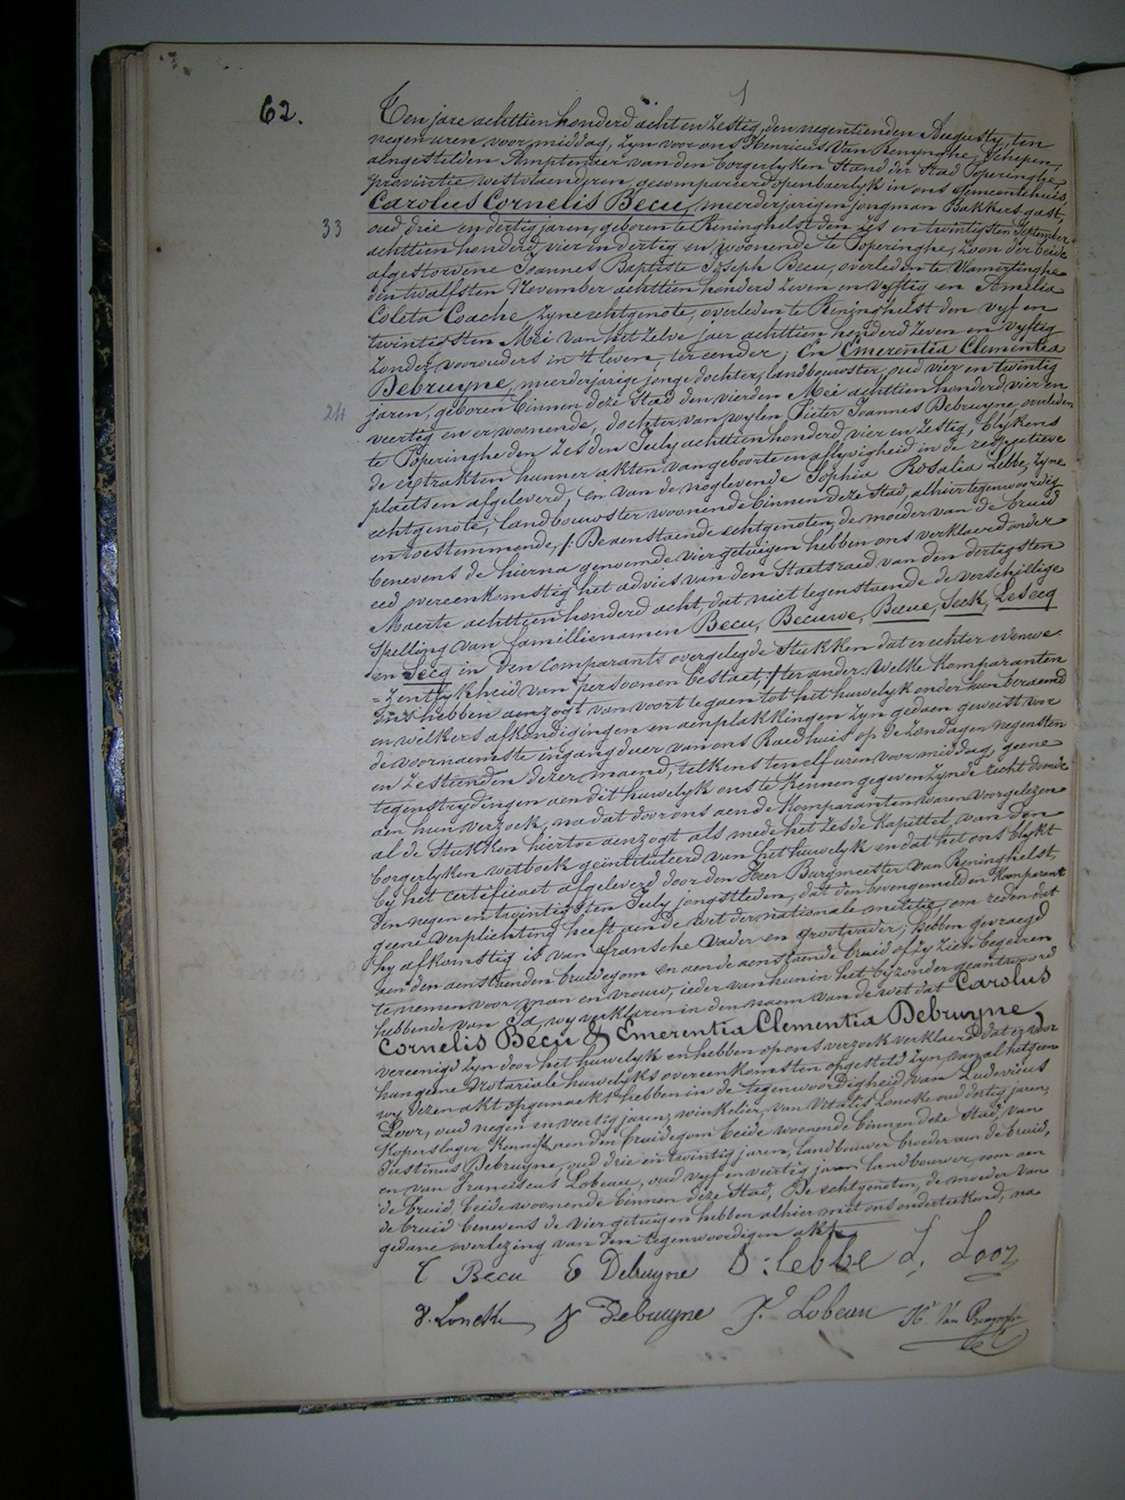 62.
Ten jare achttien honderd acht en zestig, den negentienden Augusty, ten
negen uren voor middag, zyn voor ons Henricus Van Renynghe, Schepen,
aengestelden Amptenaer van den borgerlyken Stand der Stad Poperinghe,
provintie westvlaenderen, gecompareerd openbaerlyk in ons gemeentehuis,
Carolus Cornelis Becu, meerderjarigen jongman Bakkers gast,
33
oud drie en dertig jaren, geboren te Reninghelst den zes en twintigsten September
achttien honderd vier en dertig en woonende te Poperinghe, zoon der beide
afgestorvene Joannes Baptiste Joseph Becu, overleden te Vlamertinghe
den twalfsten November achttien honderd zeven en vyftig en Amelia
Coleta Coache zyne echtgenote, overleden te Reninghelst den vyf en
twintigsten Mei van het zelve jaer achttien honderd zeven en vyftig
zonder voorouders in 't leven, ter eender; En Emerentia Clementia
Debruyne, meerderjarige jonge dochter, landbouwster, oud vier en twintig
24
jaren, geboren binnen deze Stad den vierden Mei achttien honderd vier en
veertig en er woonende, dochter van wylen Pieter Joannes Debruyne, overleden
te Poperinghe den zesden July achttien honderd vier en zestig, blykens
de extrakten hunner akten van geboorte en aflyvigheid in de respectieve
plaetsen afgeleverd, en van de noglevende Sophia Rosalia Lebbe, zyne
echtgenote, landbouwster woonende binnen deze Stad, alhier tegenwoordig
en toestemmende, /: De aenstaende echtgenoten, de moeder van de bruid
benevens de hierna genoemde vier getuigen hebben ons verklaerd onder
eed overeenkomstig het advies van den Staetsraed van den dertigsten
Maerte achttien honderd acht, dat niet tegenstaende de verschillige
spelling van famillienamen Becu, Becuwe, Becue, Seck, Lesecq
en Secq in den comparants overgelegde stukken dat er echter eenwe-
=zentlykheid van persoonen bestaet; :/ ter ander: Welke komparanten
ons hebben aenzogt van voort te gaen tot het huwelyk onder hun beraemd
en welkers afkondigingen en aenplakkingen zyn gedaen geweest voor
de voornaemste ingangdeur van ons Raedhuis op de zondagen negensten
en zestienden dezer maend, telkens ten elf uren voor middag, geene
tegenstrydingen aen dit huwelyk ons te kennen gegeven zynde recht doende
aen hun verzoek, na dat door ons aen de komparanten waren voorgelezen
al de stukken hiertoe aenzogt als mede het zesde kapittel van den
borgerlyken wetboek geïntituleerd van het huwelyk en dat het ons blykt
by het certificaet afgeleverd door den Heer Burgmeester van Reninghelst,
den negen en twintigsten July jongstleden, dat den bovengemelden komparant
geene verplichting heeft aen de wet der nationale militie, om reden dat
hy afkomstig is van franschen Vader en grootvader; hebben gevraegd
aen den aenstaenden bruidegom en aen de aenstaende bruid of zy zich begeiren
te nemen voor man en vrouw, ieder van hun in het byzonder geantwoord
hebbende van Ja, wy verklaren in den naem van de wet dat Carolus
Cornelis Becu & Emerentia Clementia Debruyne,
vereenigd zyn door het huwelyk en hebben op ons verzoek verklaerd dat er voor
hun geene Notariale huwelyks overeenkomsten opgesteld zyn, van al hetgeen
wy dezen akt opgemaekt hebben in de tegenwoordigheid van Ludovicus
Loor, oud negen en veertig jaren, winkelier, van Vitalis Loncke oud dertig jaren,
koperslager kennis aen den bruidegom beide woonende binnen deze Stad, van
Justinus Debruyne, oud drie en twintig jaren, landbouwer broeder aen de bruid,
en van Franciscus Lobeau, oud vyf en veertig jaren landbouwer, oom aen
de bruid, beide woonende binnen deze Stad, De echtgenoten, de moeder van
de bruid benevens de vier getuigen hebben alhier met ons onderteekend, na
gedane overlezing van den tegenwoordigen akt.
C Becu E Debruyne S: lebbe L. Loor
V. Loncke J Debruyne F. Lobeau Hri Van Renynghe